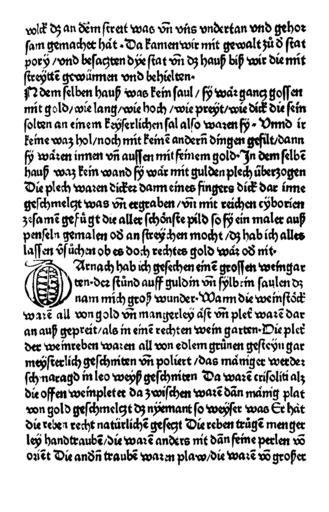 wolck dz an dẽm streit was vñ vns vndertan vnd gehor
sam gemachet hat · Da kamen wir mit gewalt zů d stat
pory / vnd besaczten dye stat vñ dz hauß biß wir die mit
streytten gewunnen vnd behielten ·
N dem selben hauß was kein saul / sy wär gancz gossen
mit gold / wie lang / wie hoch / wie preyt / wie dick die sein
solten an einem keyserlichen sal also waren sy · Vnnd ir
keine waz hol / noch mit keinẽ andern dingen gefült / dann
sy wären innen vñ aussen mit feinem gold · In dem selbẽ
hauß waz kein wand sy wär mit gulden plech überzogen
Die plech waren dicker dann eines fingers dick dar inne
geschmelczt was vñ ergraben / vñ mit reichen cyborien
zesamẽ gefügt die aller schönste pild so sy ein maler auß
penseln gemalen od an streychen mocht / dz hab ich alles
lassen v̈suchen ob es doch rechtes gold wär od nit ·
Darnach hab ich gesehen einẽ grossen weingar
ten · der stůnd auff guldin vñ sylbrin saulen dz
nam mich groß wunder · Wann die weinstöck
warẽ all von gold vñ mangerley äst vñ plet warẽ dar
an auß gepreit / als in einẽ rechten wein garten · Die pleť
der weinreben waren all von edlem grünen gesteyn gar
meysterlich geschniten vñ poliert / das mäniger werder
schmaragd in leo weyß geschniten Da warẽ crisoliti alz
die offen weinpleter da zwischen warẽ dañ mänig plat
von gold geschmelczt dz nyemant so weyser was Er hät
die reben recht natürlichẽ gesetzt Die reben trůgẽ menger
ley handtraubẽ / die warẽ anders nit dañ feine perlen vö
oriẽt Die andñ trauben waren plaw / die warẽ võ großer